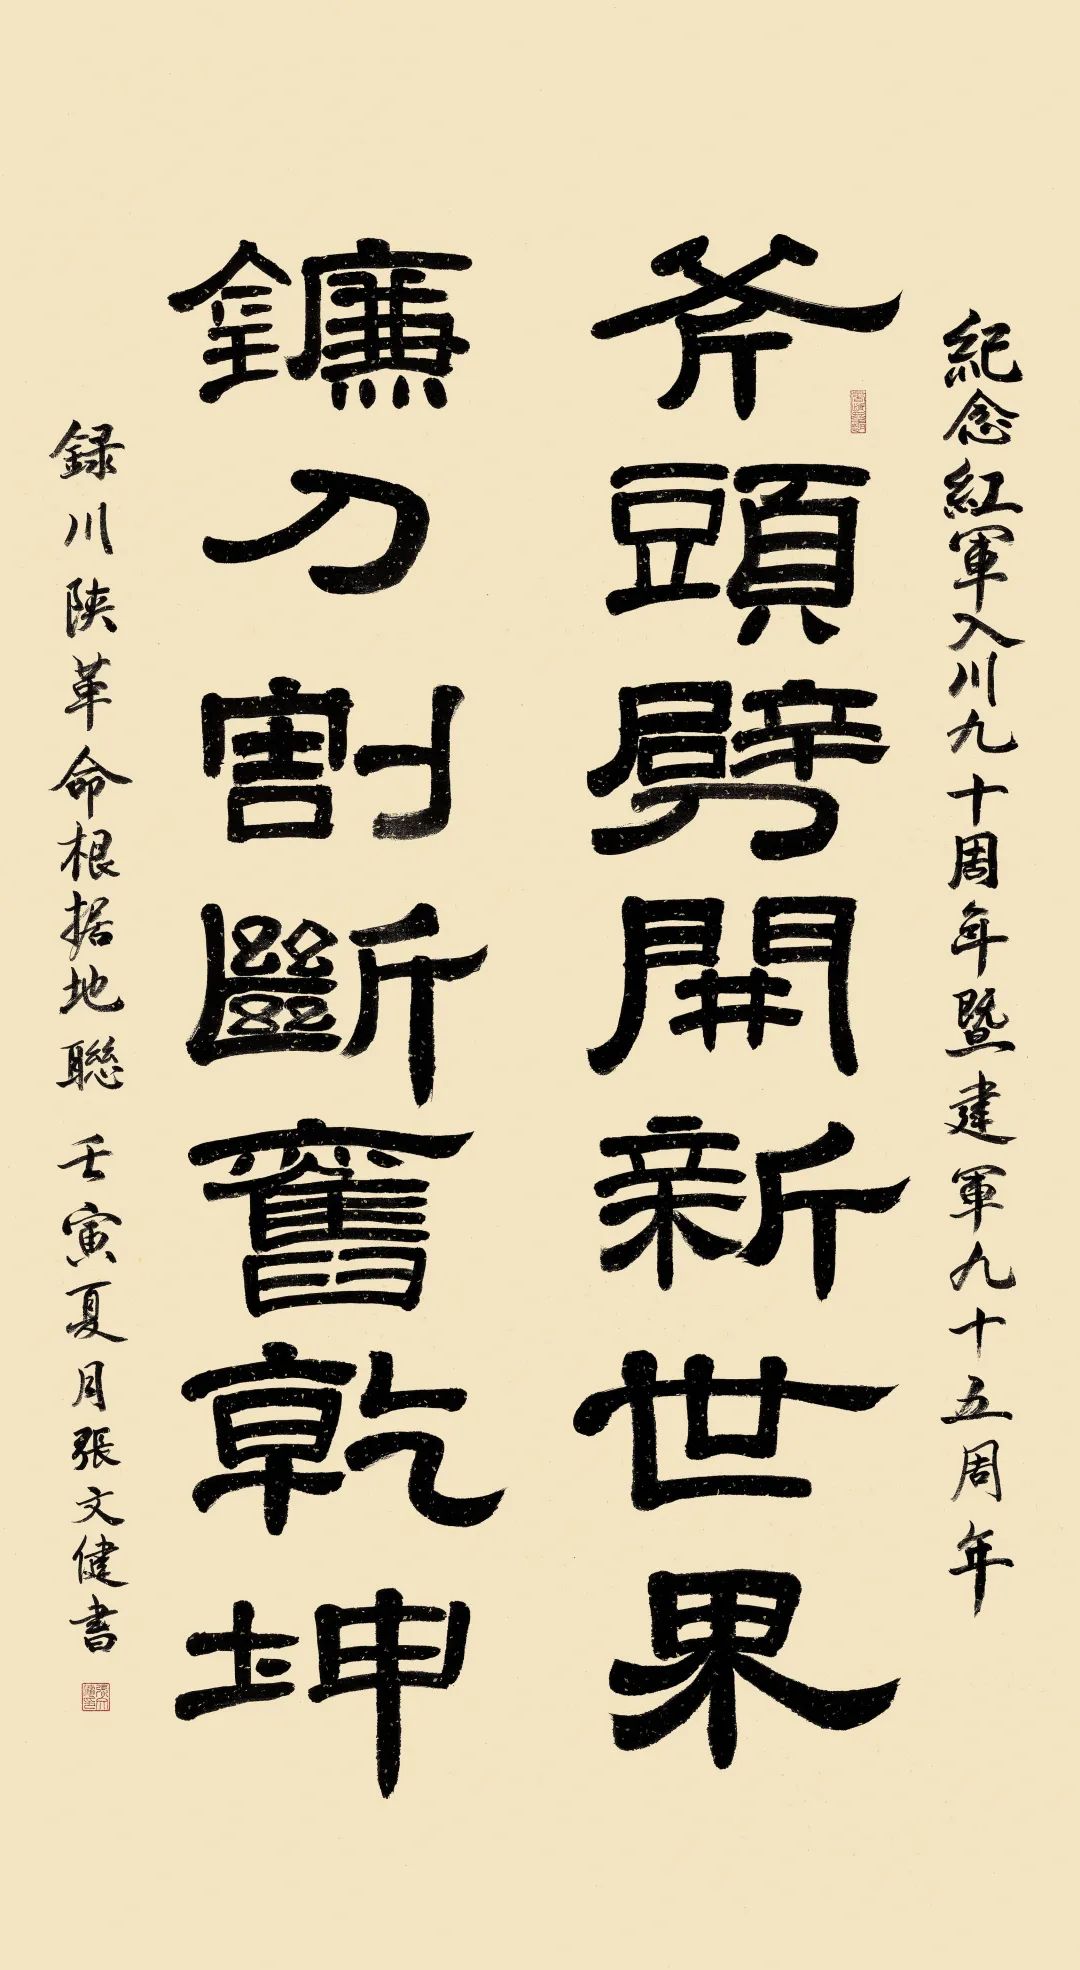 紀念紅軍入川九十周年暨建軍九十五周年
斧頭劈開新世界
鐮刀割斷舊乾坤
録川陕革命根据地聯 壬寅夏月張文健書